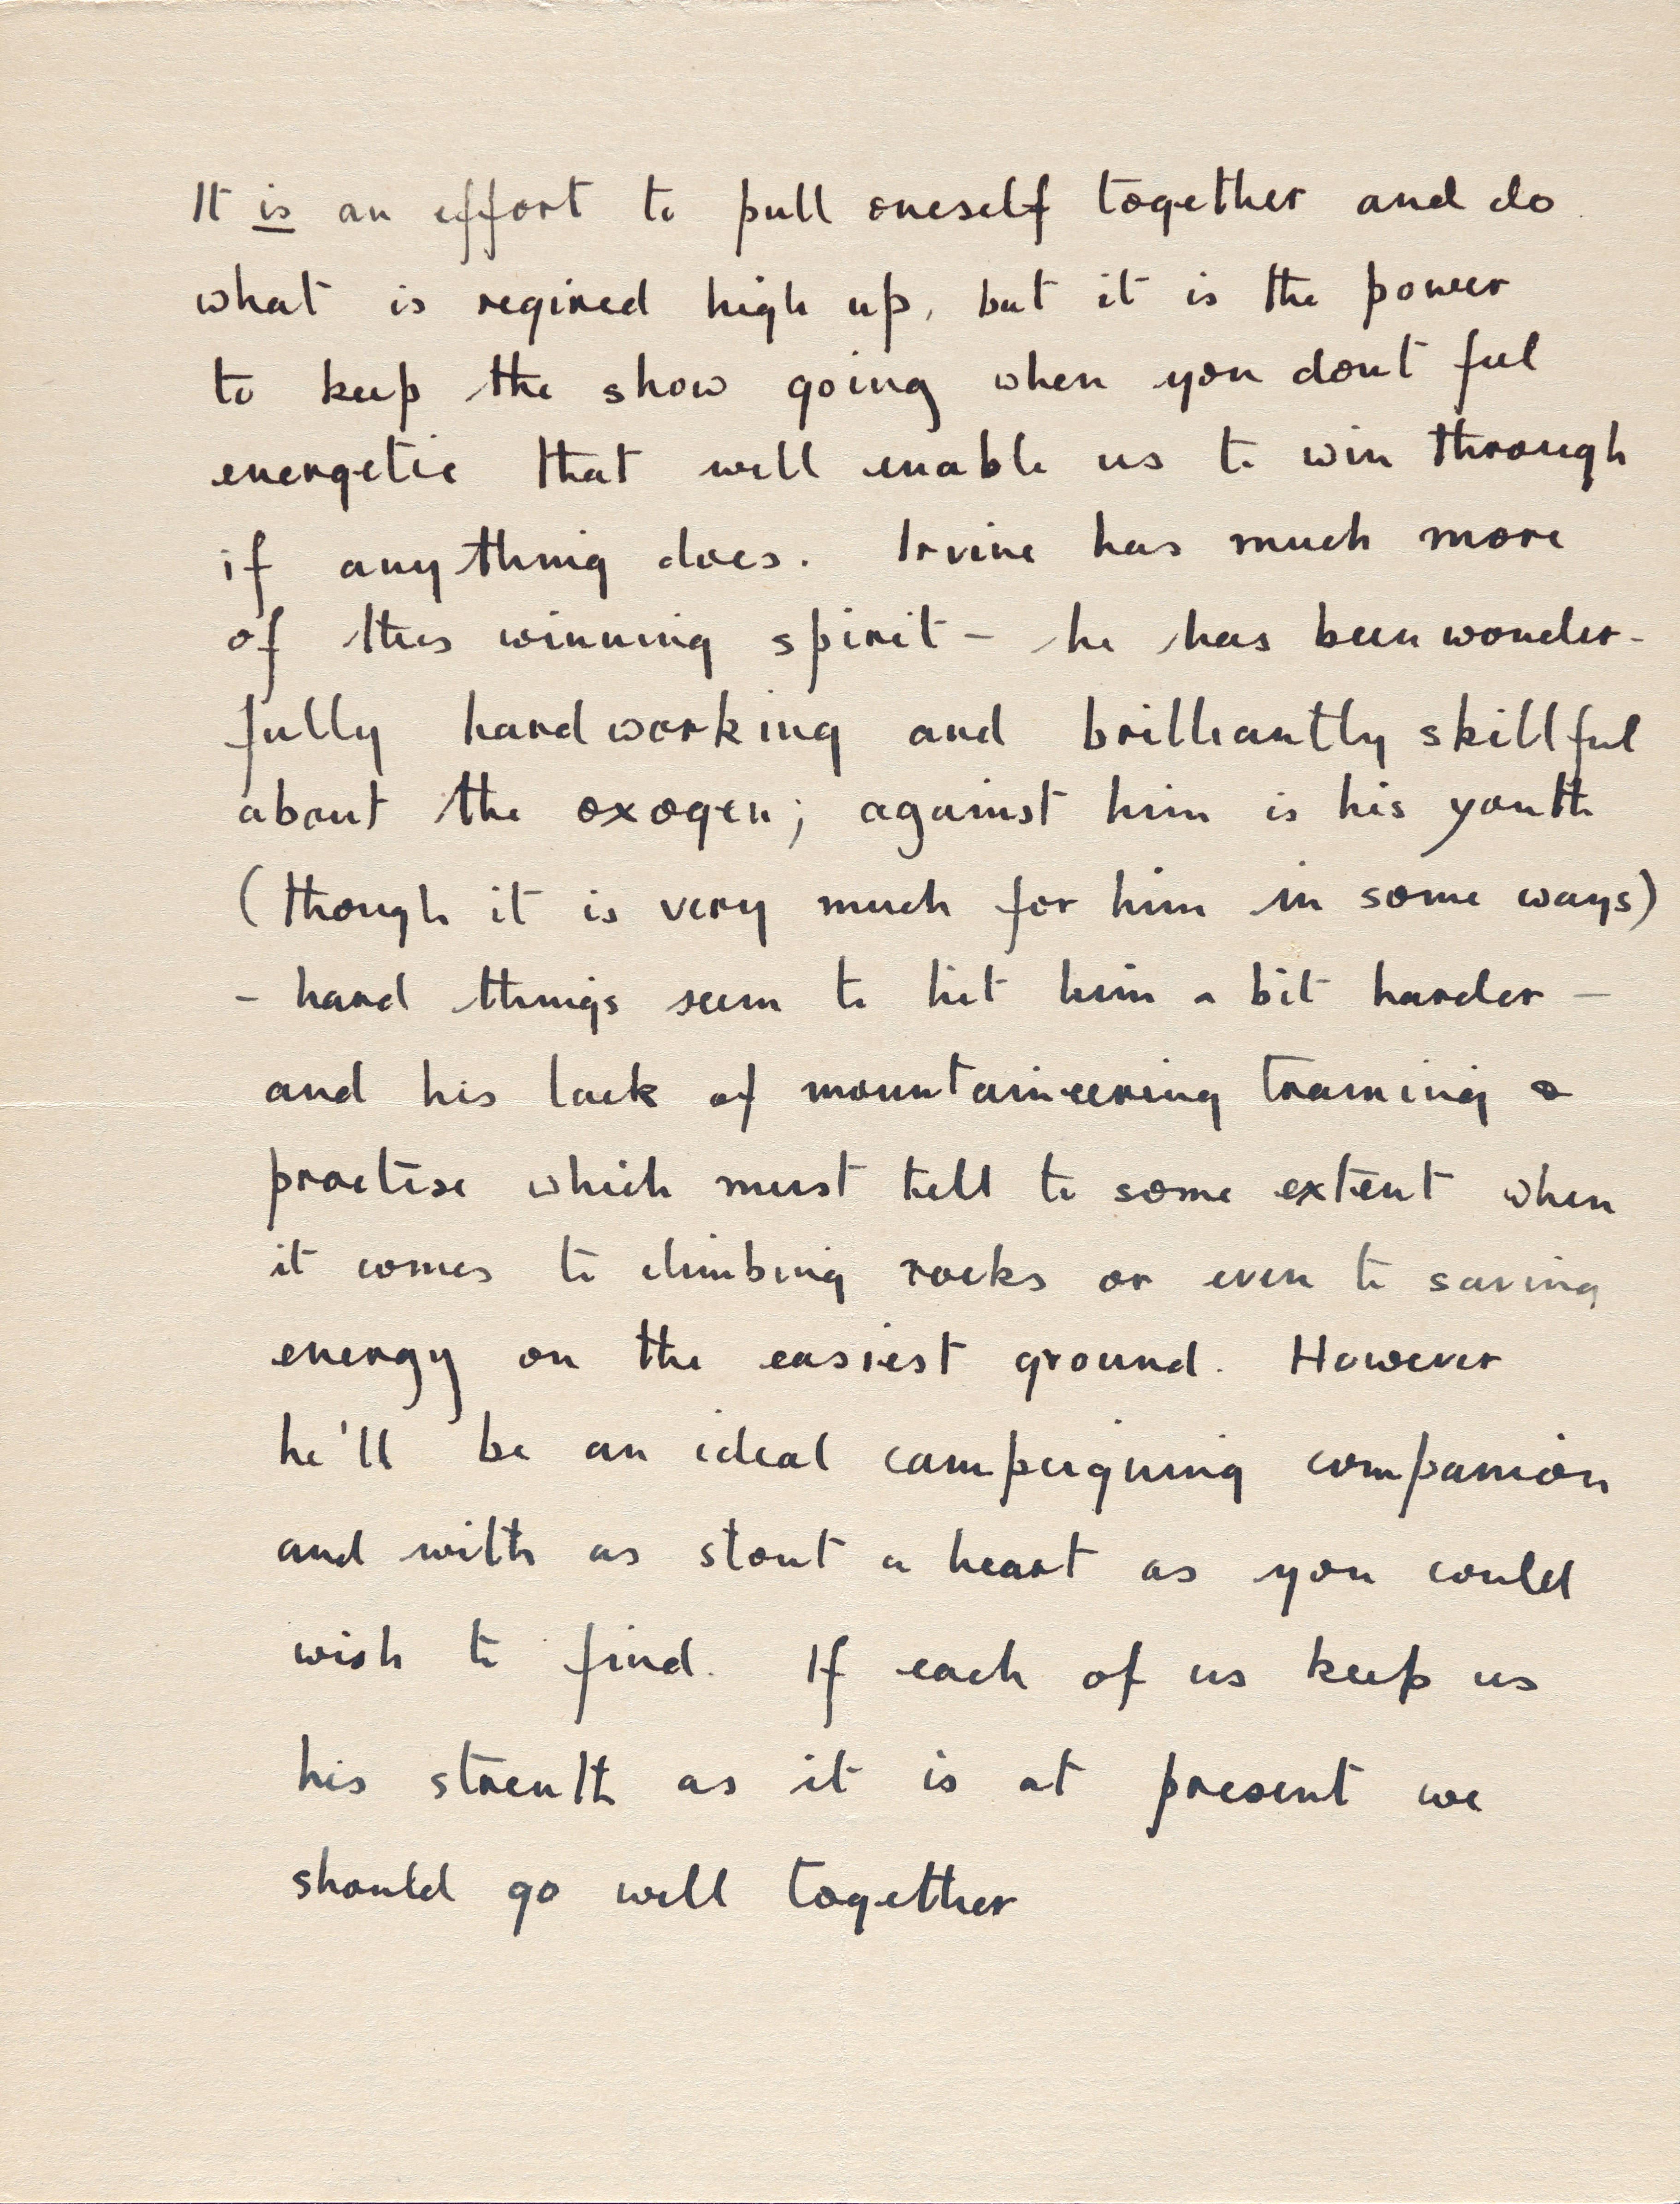 It is an effort to pull oneself together and do
what is reqired high up, but it is the power
to keep the show going when you dont feel
energetic that will enable us to win through
if anything does. Irvine has much more
of this winning spirit – he has been wonder-
fully hardworking and brilliantly skillful
about the oxogen; against him is his youth
(though it is very much for him in some ways)
– hard things seem to hit him a bit harder –
and his lack of mountaineering training &
practise which must tell to some extent when
it comes to climbing rocks or even to saving
energy on the easiest ground. However
he'll be an ideal campeigning companion
and with as stout a heart as you could
wish to find. If each of us keep us
his strenth as it is at present we
should go well together